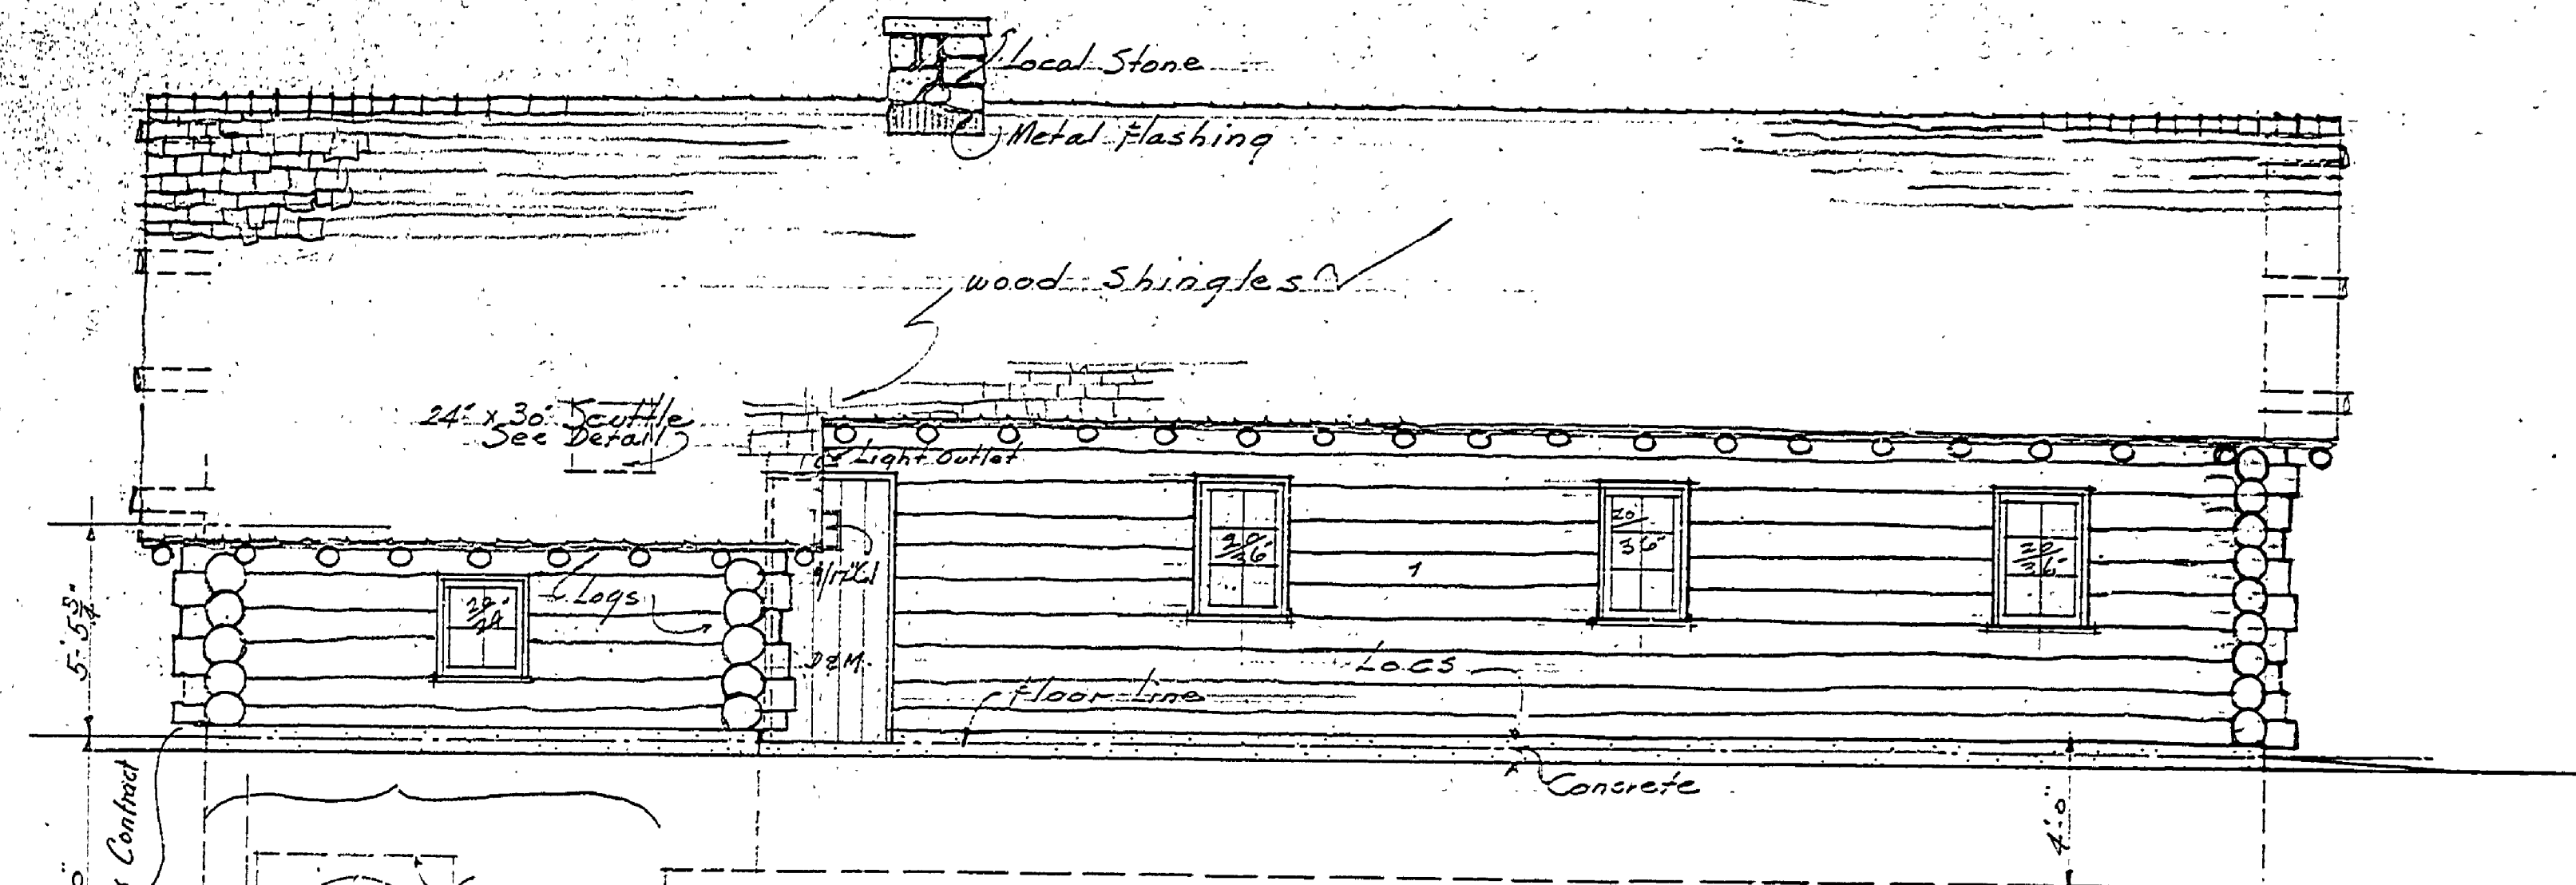 Local Stone
Metal Flashing
wood Shingles
24" x 30" Scuttle
See Detail
Light Outlet
20"
36"
20
36"
20
36"
1
5'-5¾"
22"
24
Logs
D&M.
Logs
Floor Line
Concrete
Contract
4'-0"